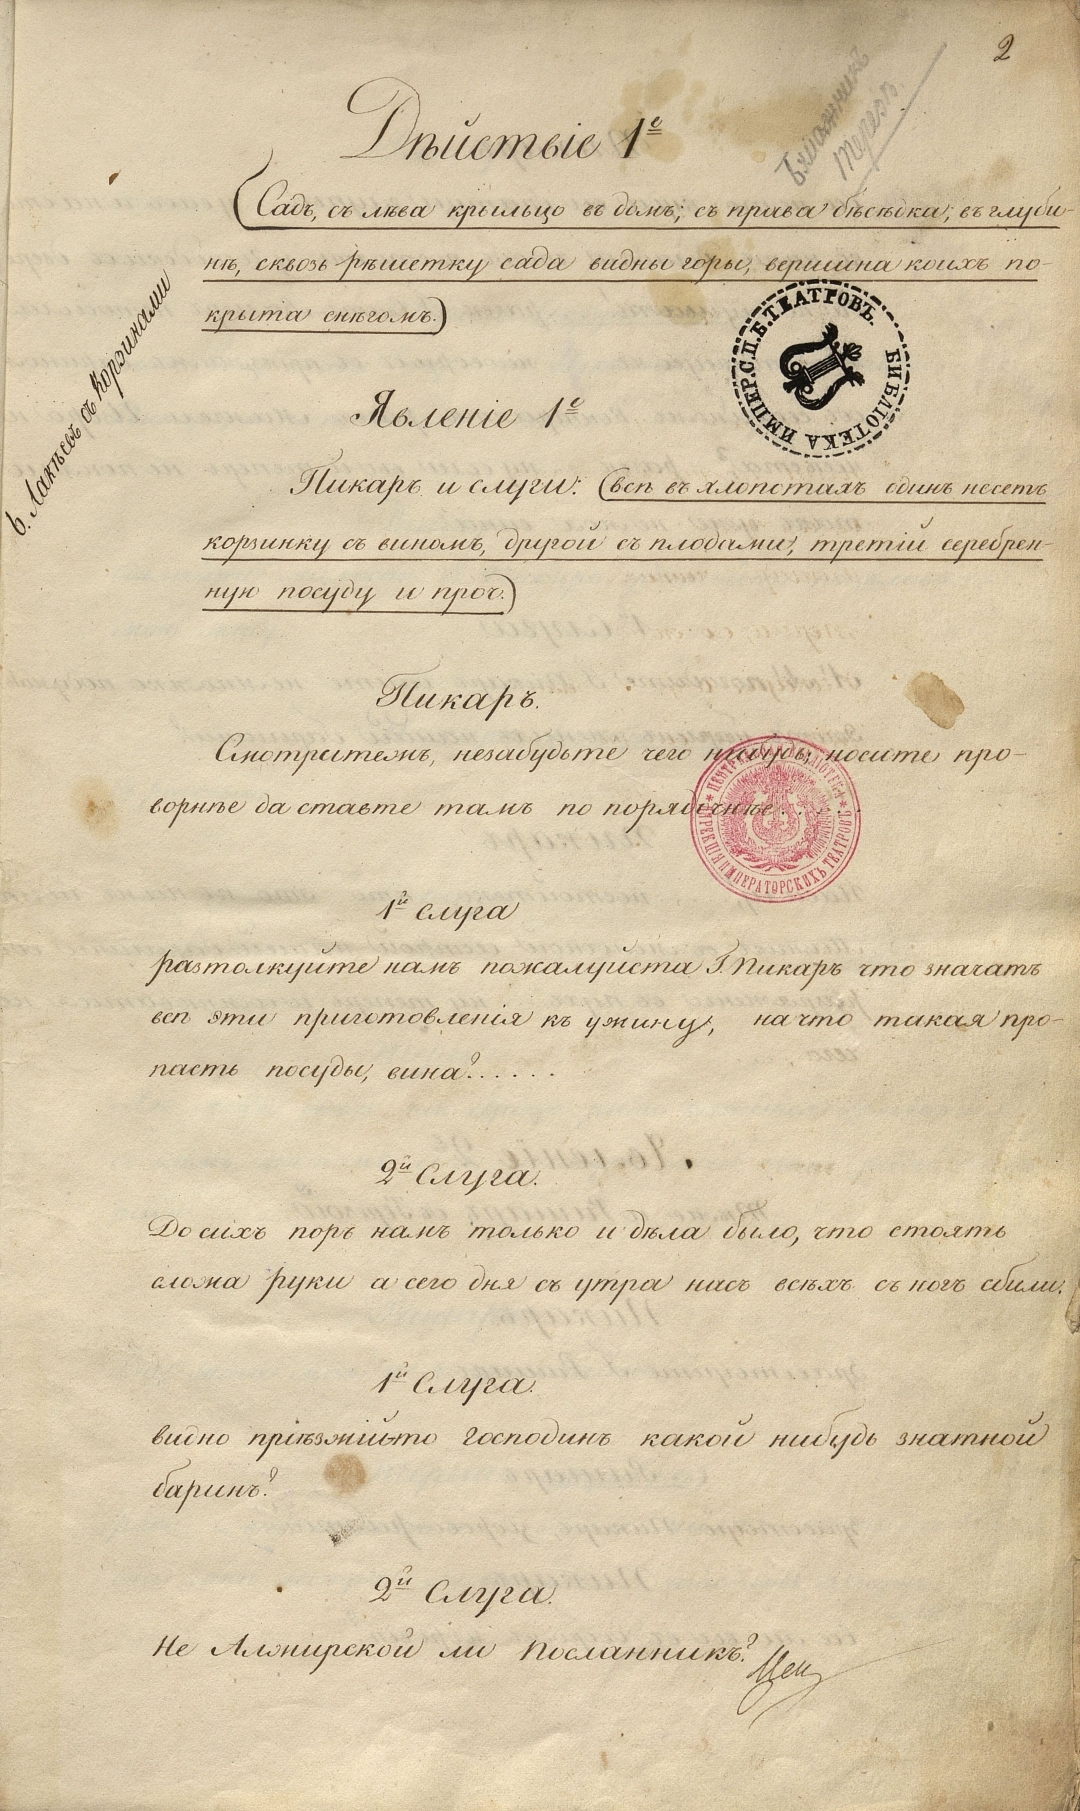 2
Дѣйствіе 1е
(Садъ, съ лѣва крыльцо въ домъ; съ права бѣсѣдка, въ глуби-
нѣ, сквозь рѣшетку сада видны горы, вершина коихъ по-
крыта снѣгомъ.)
6. Лакѣевъ съ Корзинами
БИБЛІОТЕКА ИМПЕР. С.П.Б. ТЕАТРОВЪ.
Явленіе 1е
Пикаръ и слуги: (всѣ въ хлопотахъ одинъ несетъ
корзинку съ виномъ, другой съ плодами, третій серебрен-
ную посуду и проч.)
Пикаръ.
Смотритежъ, незабудьте чего нибудь, носите про-
ворнѣе да ставте тамъ по порядочнѣе.....
ЦЕНТРАЛЬНАЯ БИБЛІОТЕКА ДИРЕКЦІИ ИМПЕРАТОРСКИХЪ ТЕАТРОВЪ
1й слуга
разтолкуйте намъ пожалуйста Г. Пикаръ что значатъ
всѣ эти приготовленія къ ужину, на что такая про-
пасть посуды, вина?......
2й Слуга.
До сихъ поръ намъ только и дѣла было, что стоять
сложа руки а сего дня съ утра насъ всѣхъ съ ногъ сбили.
1й Слуга.
видно пріѣзжій-то господинъ какой нибудь знатной
баринъ?
2й Слуга.
Не Алжирской ли Посланникъ?